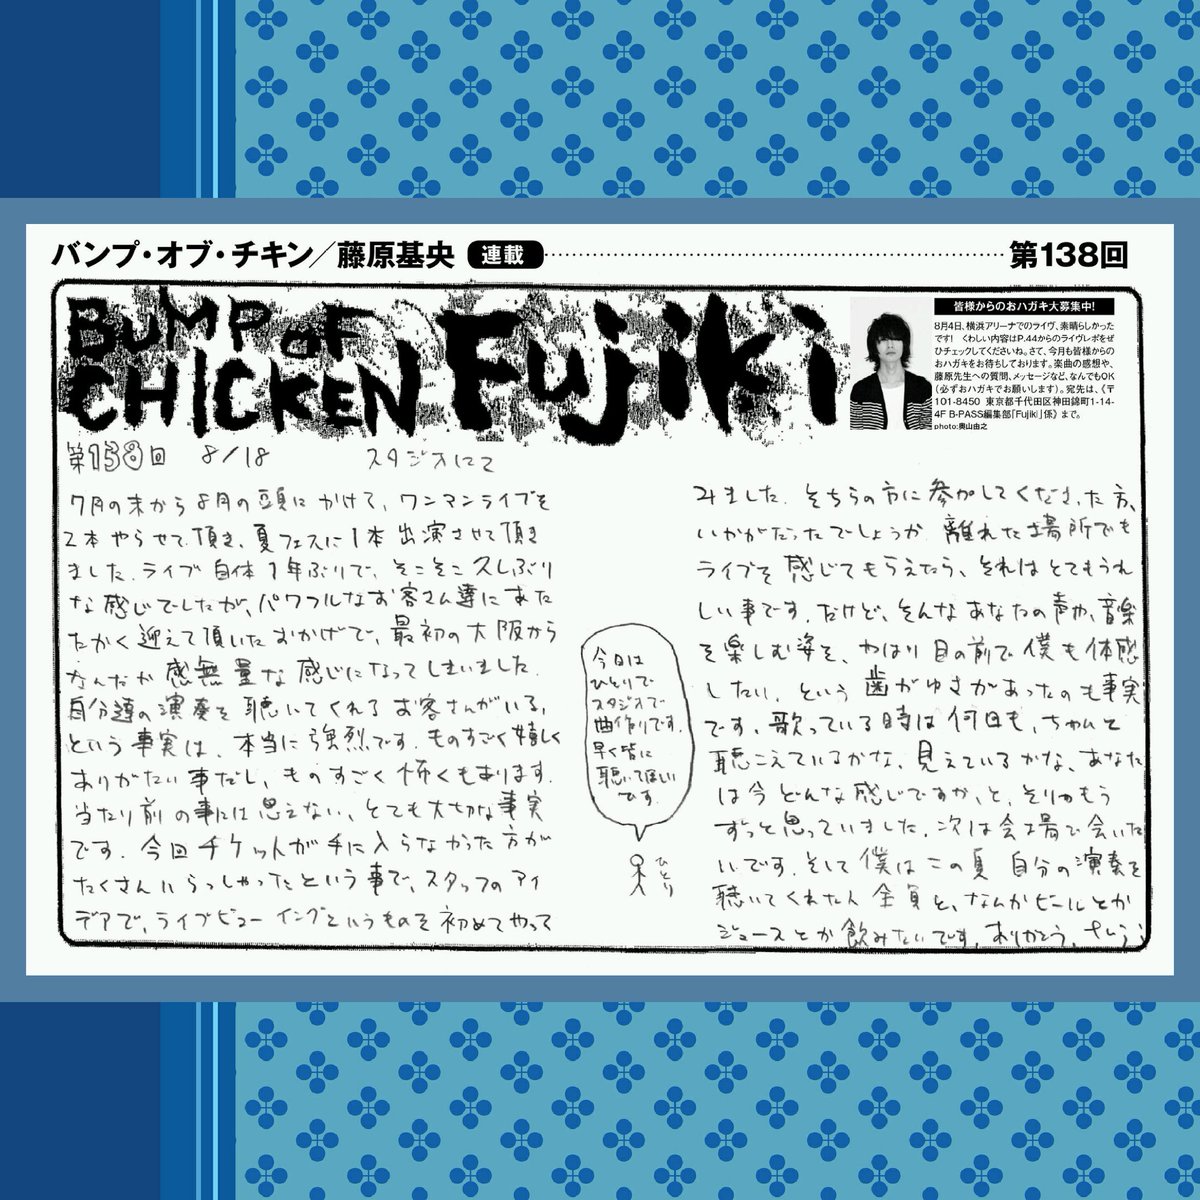 バンプ・オブ・チキン／藤原基央 連載 第138回
BUMP OF CHICKEN Fujiki
皆様からのおハガキ大募集中!
8月4日、横浜アリーナでのライヴ、素晴らしかった
です!　くわしい内容はP.44からのライヴレポをぜ
ひチェックしてくださいね。さて、今月も皆様からの
おハガキをお待ちしております。楽曲の感想や、
藤原先生への質問、メッセージなど、なんでもOK
(必ずおハガキでお願いします)。宛先は、《〒
101-8450 東京都千代田区神田錦町1-14-
4F B-PASS編集部「Fujiki」係》まで。
photo:奥山由之
第138回 8/18 スタジオにて
7月の末から8月の頭にかけて、ワンマンライブを
2本やらせて頂き、夏フェスに1本出演させて頂き
ました。ライブ自体1年ぶりで、そこそこ久しぶり
な感じでしたが、パワフルなお客さん達にあた
たかく迎えて頂いたおかげで、最初の大阪から
なんだか感無量な感じになってしまいました。
自分達の演奏を聴いてくれるお客さんがいる、
という事実は、本当に強烈です。ものすごく嬉しく
ありがたい事だし、ものすごく怖くもあります。
当たり前の事には思えない、とても大切な事実
です。今回チケットが手に入らなかった方が
たくさんいらっしゃったという事で、スタッフのアイ
デアで、ライブビューイングというものを初めてやって
今日は
ひとりで
スタジオで
曲作りです。
早く皆に
聴いてほしい
です。
ひとり
みました。そちらの方に参加してくださった方、
いかがだったでしょうか。離れた場所でも
ライブを感じてもらえたなら、それはとてもうれ
しい事です。だけど、そんなあなたの声や、音楽
を楽しむ姿を、やはり目の前で僕も体感
したい、という歯がゆさがあったのも事実
です。歌っている時は何回も、ちゃんと
聴こえているかな、見えているかな、あなた
は今どんな感じですか、と、そりゃもう
ずっと思っていました。次は会場で会いた
いです。そして僕はこの夏自分の演奏を
聴いてくれた人全員と、なんかビールとか
ジュースとか飲みたいです。ありがとう。